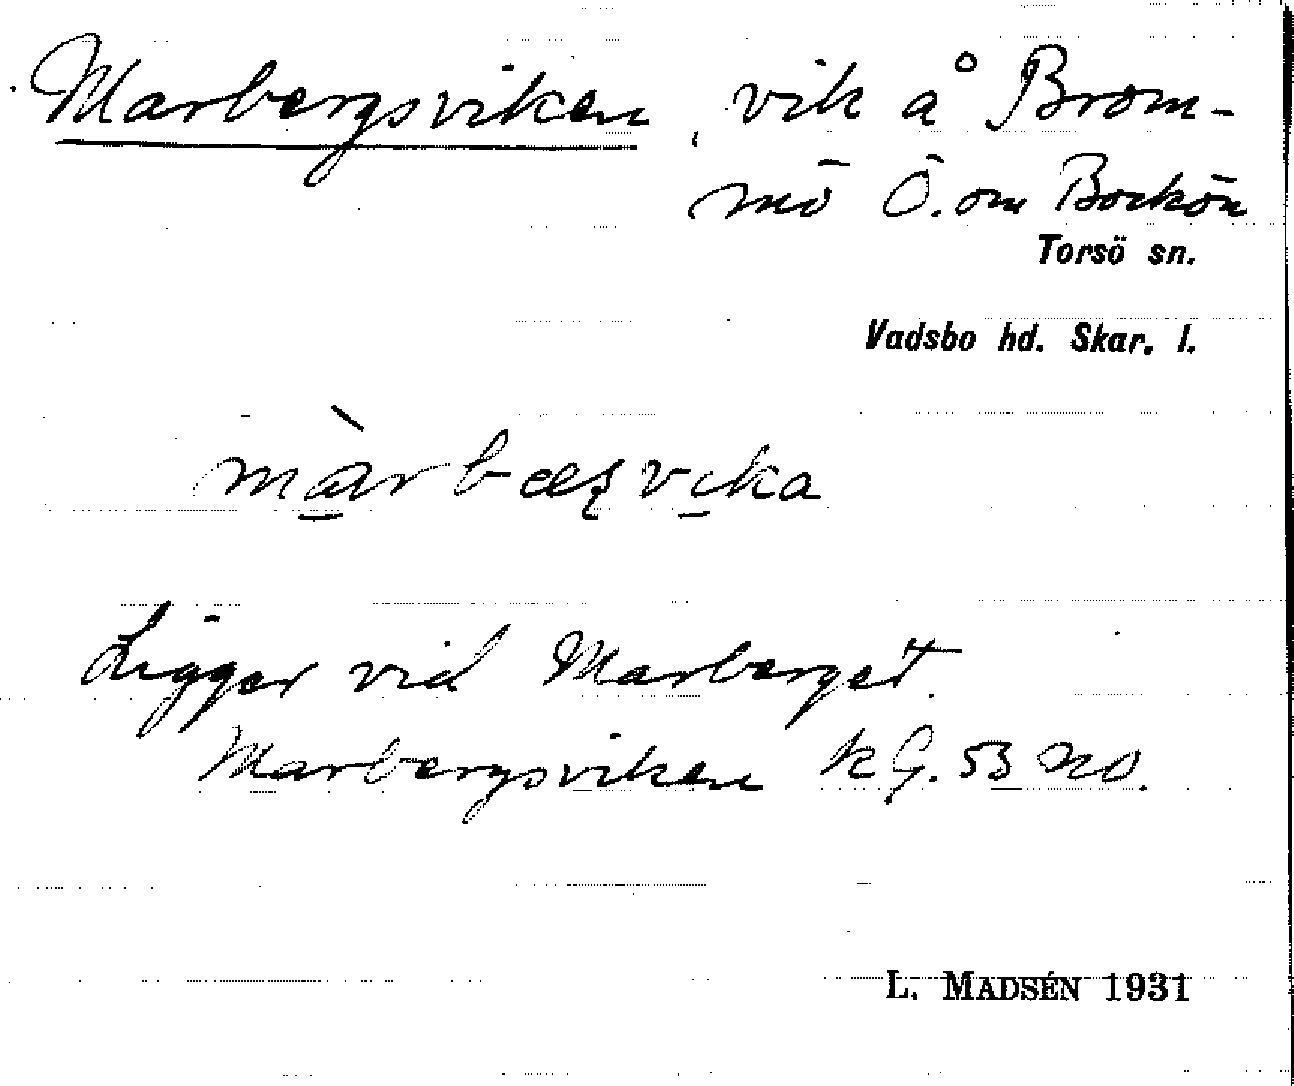 Marbergsviken, vik å Brom-
mö Ö. om Bockön
Torsö sn.
Vadsbo hd. Skar. l.
màrbæʂvika
Ligger vid Marberget.
Marbergsviken kG. 53 NO.
L. MADSÉN 1931